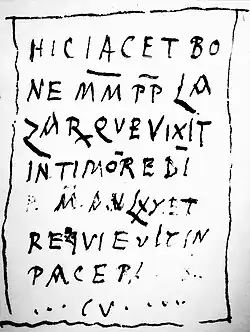 HIC IACET BO
NE MM PP LA
ZAR QVE VIXIT
IN TIMORE DI
ET
REQVIEVIT IN
PACE PI
CV